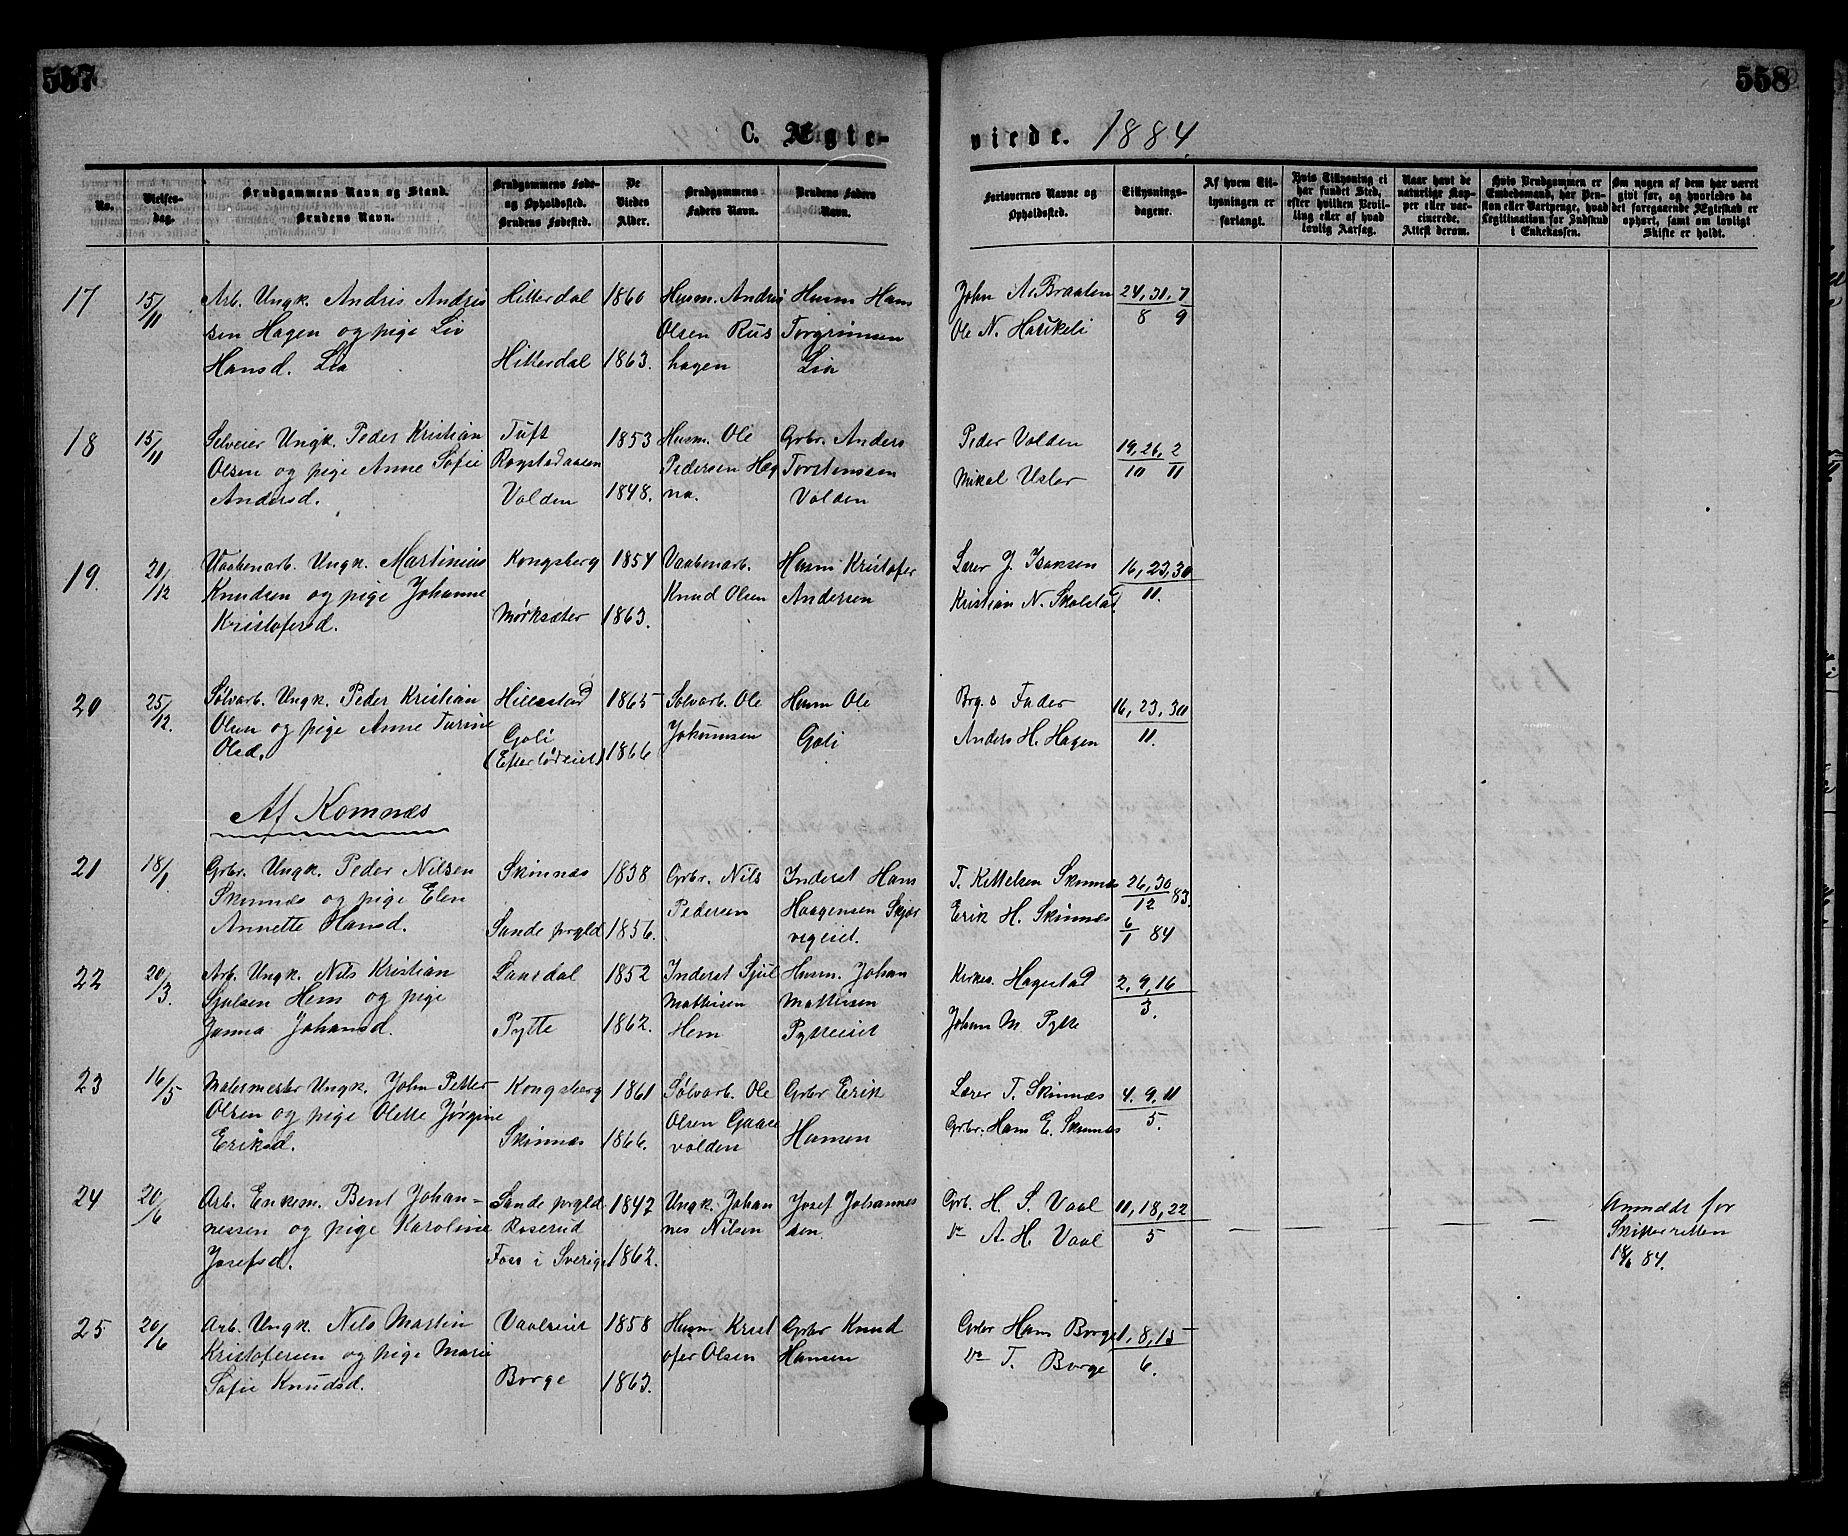 557
558
C. Ægte-
viede. 1884
No.
Vielses-
dag.
Brudgommens Navn og Stand.
Brudens Navn.
Brudgommens Føde-
og Opholdssted.
Brudens Fødested.
De
Viedes
Alder.
Brudgommens
Faders Navn.
Brudens Faders
Navn.
Forlovernes Navne og
Opholdssted.
Tillysnings-
dagene.
Af hvem Til-
lysningen er
forlangt.
Hvis Tillysning ei
har fundet Sted,
efter hvilken Bevil-
ling eller af hvad
lovlig Aarsag.
Naar havt de
naturlige Kop-
per eller vac-
cinerede.
Attest derom.
Hvis Brudgommen er
Embedsmand, har Pen-
sion eller Vartpenge, hvad
Legitimation for Indskud
i Enkekassen.
Om nogen af dem har været
givt før, og hvorledes da
det foregaaende Ægteskab er
ophørt, samt om lovligt
Skifte er holdt.
17
15/11
Arb. Ungk. Andris Andris
sen Hagen og pige Liv
Hansd. Lia
Hitterdal
Hitterdal
1860
1863.
Husm. Andris
Olsen Rus
hagen
Husm Hans
Torgrimsen
Lia
John A. Braaten
Ole N. Haukeli
24, 31, 7
8 9
18
15/11
Selveier Ungk. Peder Kristian
Olsen og pige Anne Sofie
Andersd.
Tuft
Rogstadaasen
Volden
1853
1848.
Husm. Ole
Pedersen Høg
na.
Grbr. Anders
Torstenssen
Volden
Peder Volden
Mikal Usler
19, 26, 2
10 11
19.
21/12
Vaabenarb. Ungk. Martinius
Knudsen og pige Johanne
Kristofersd.
Kongsberg
Mørksæter
1854
1863.
Vaabenarb.
Knud Olsen
Husm Kristofer
Andersen
Lærer J. Isaksen
Kristian N. Skolstad
16, 23, 30
11.
20
25/12.
Sølvarb. Ungk. Peder Kristian
Olsen og pige Anne Turine
Olsd.
Hillestad
Goli
(Efterlødeiet)
1865
1866
Sølvarb. Ole
Johannsen
Husm Ole
Goli
Brg.s Fader
Anders H. Hagen
16, 23, 30
11.
Af Komnæs
21
18/1
Grbr. Ungk. Peder Nilsen
Skinnæs og pige Elen
Annette Hansd.
Skinnæs
Sande prgld
1838
1856.
Grbr. Nils
Pedersen
Inderst Hans
Haagensen Skjær
vigeiet.
T. Kittelsen Skinnæs
Erik H. Skinnæs
26, 30
12 83.
6
1 84
22
20/3.
Arb. Ungk. Nils Kristian
Sjulsen Hem og pige
Janna Johansd.
Laurdal
Pytte
1852
1862.
Inderst Sjul
Mathisen
Hem
Husm. Johan
Mathisen
Pytteeiet
Kirkes. Hagestad
Johan M. Pytte
2, 9, 16
3.
23
16/5
Malermester Ungk. John Petter
Olsen og pige Olette Jørgine
Eriksd.
Kongsberg
Skinnæs
1861
1866.
Sølvarb. Ole
Olsen Gaase
volden
Grbr Erik
Hansen
Lærer T. Skinnæs
Grbr. Hans E. Skinnæs
4. 9. 11
5.
24
20/6
Arb. Enkem. Bent Johan-
nessen og pige Karoline
Josefsd.
Sande prgld
Roserud
Foss i Sverige
1842
1862.
Ungk. Johan
nes Nilsen
Josef Johannes
sen.
Grb. H. S. Vaal
do A. H. Vaal
11, 18, 22
5
— — — —
Anmeldt for
Skifteretten
18/6 84.
25
20/6
Arb. Ungk. Nils Martin
Kristofersen og pige Marie
Sofie Knudsd.
Vaalseiet
Borge
1858
1863.
Husm Krist
ofer Olsen
Grbr Knud
Hansen
Grbr Hans Borge
do T. Borge
1, 8, 15
6.